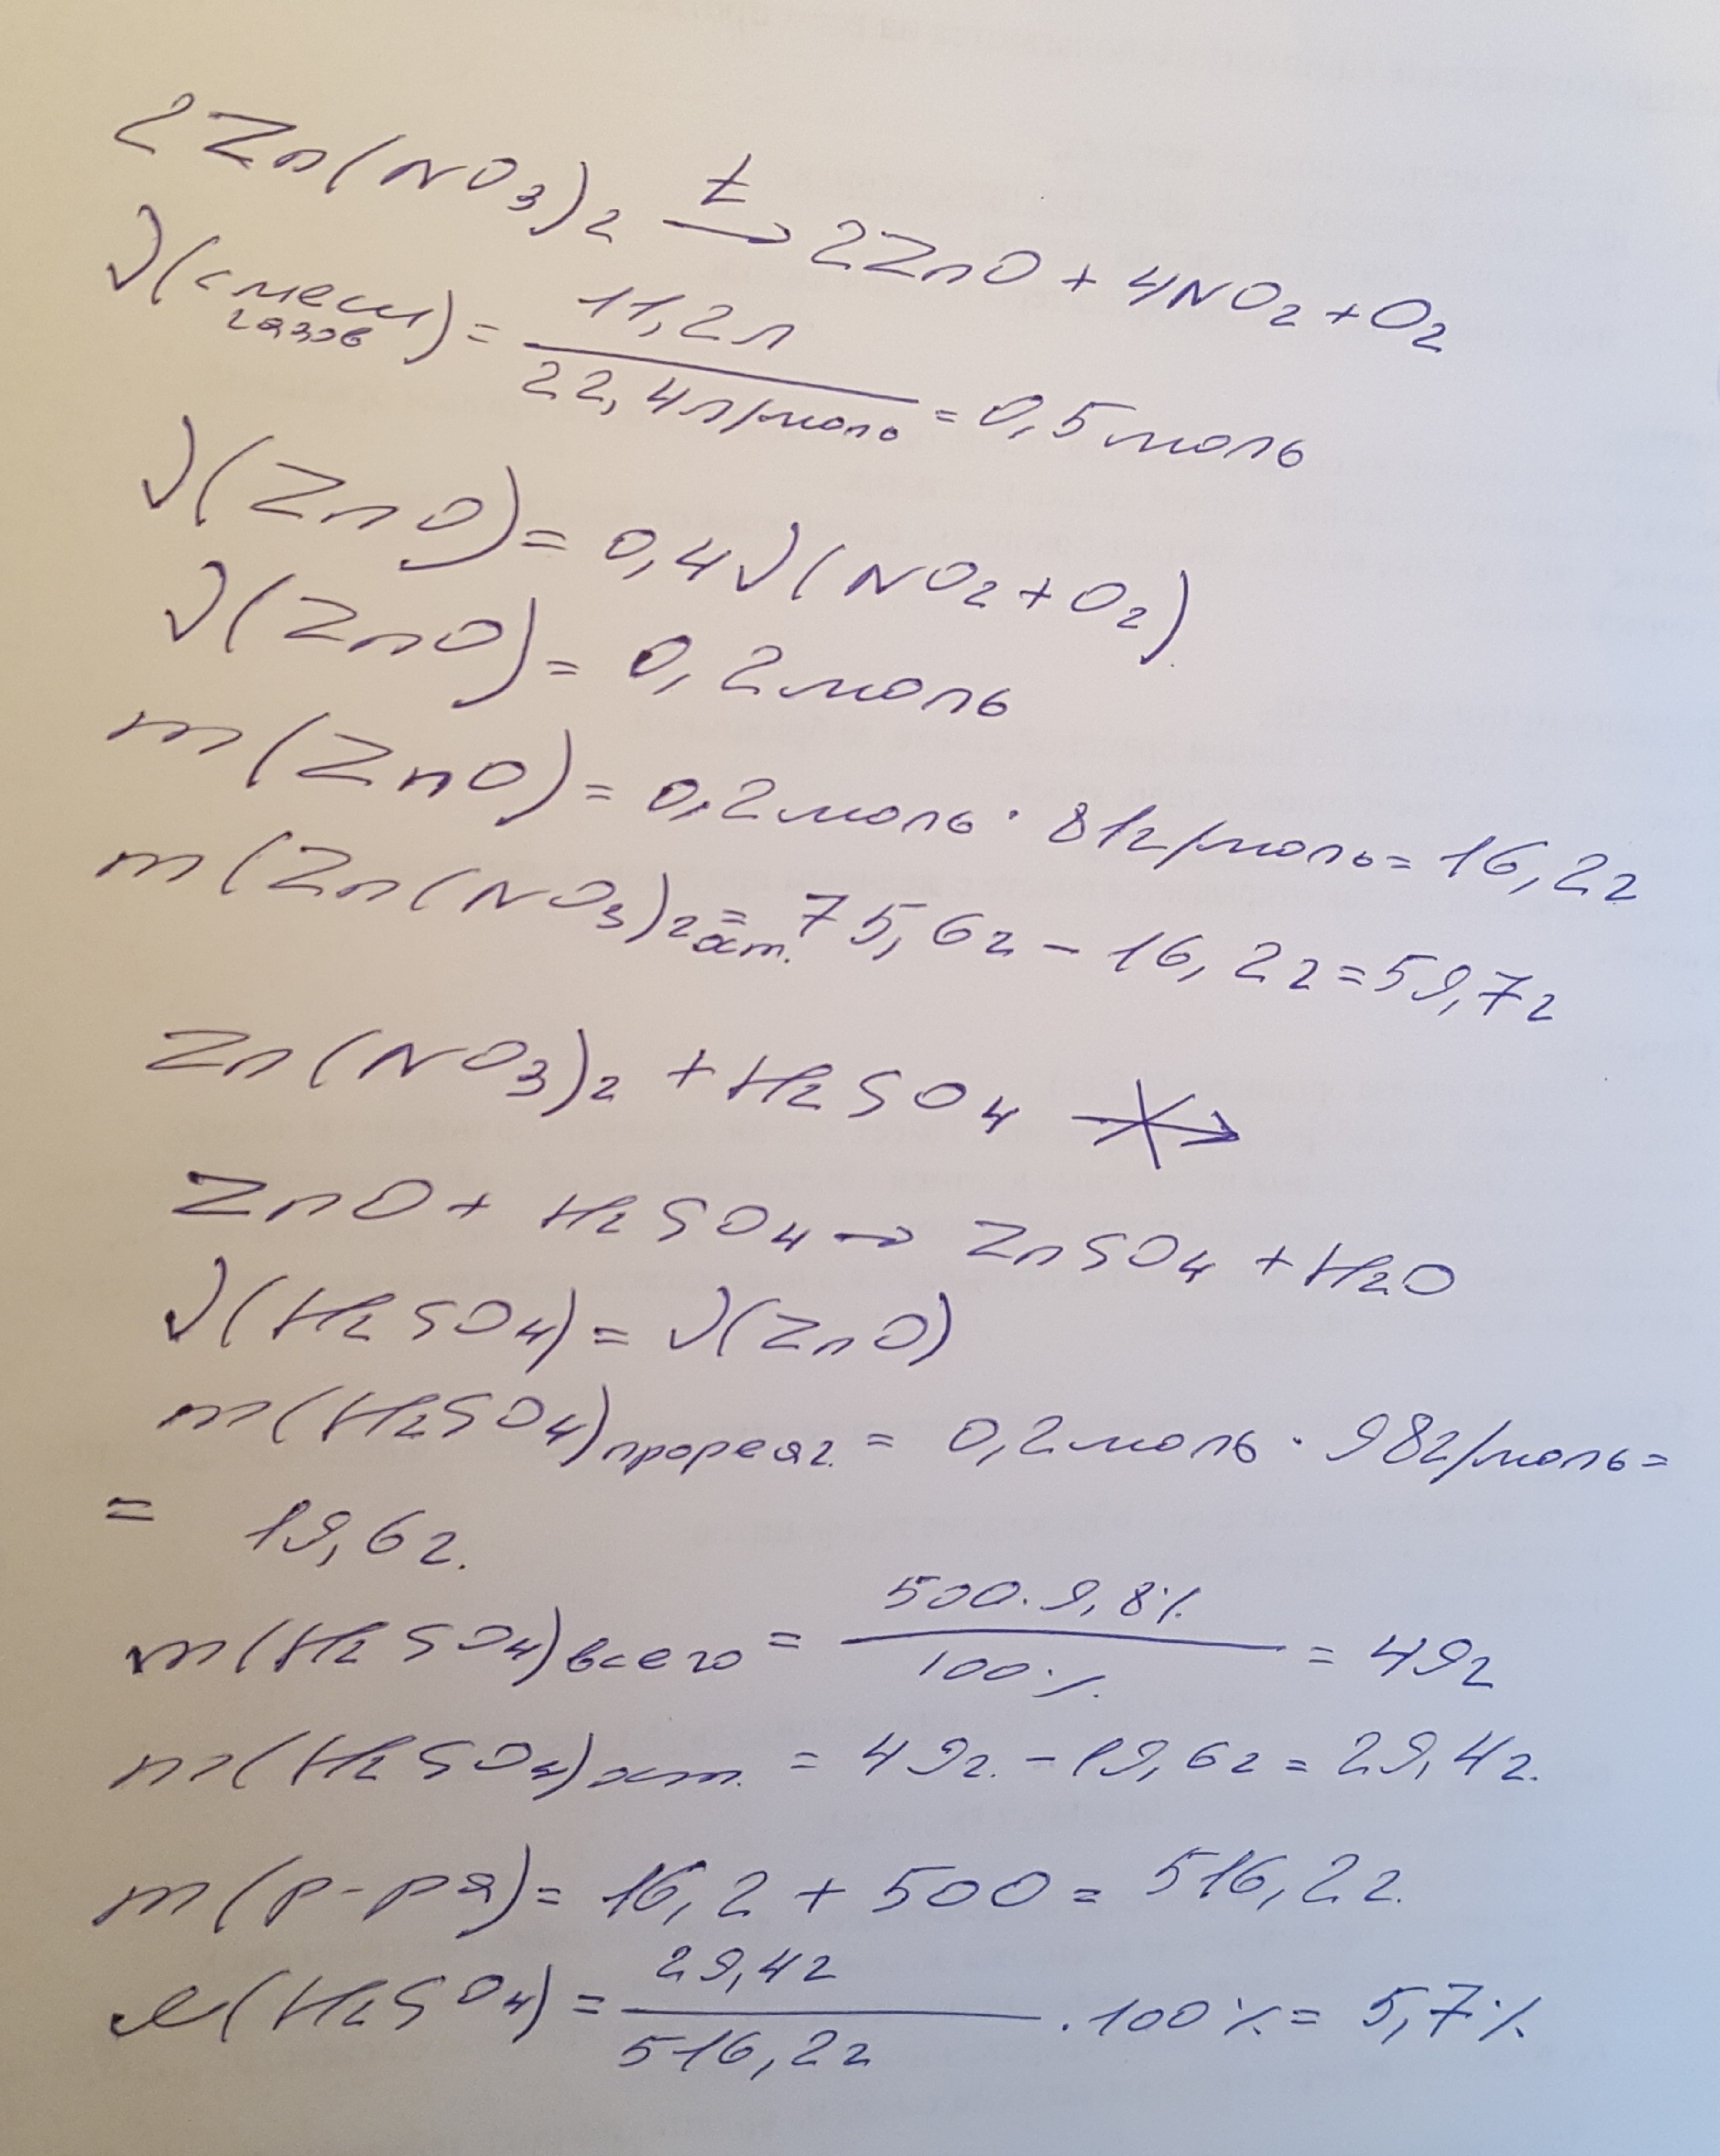 2Zn(NO₃)₂ t→ 2ZnO + 4NO₂ + O₂
ν(смеси газов) = 11,2л / 22,4л/моль = 0,5моль
ν(ZnO) = 0,4ν(NO₂ + O₂)
ν(ZnO) = 0,2моль
m(ZnO) = 0,2моль · 81г/моль = 16,2г
m(Zn(NO₃)₂ ост. = 75,6г – 16,2г = 59,7г
Zn(NO₃)₂ + H₂SO₄ ↛
ZnO + H₂SO₄ → ZnSO₄ + H₂O
ν(H₂SO₄) = ν(ZnO)
m(H₂SO₄)прореаг. = 0,2моль · 98г/моль =
= 19,6г.
m(H₂SO₄)всего = 500 · 9,8% / 100% = 49г
m(H₂SO₄)ост. = 49г. – 19,6г = 29,4г.
m(р-ра) = 16,2 + 500 = 516,2г.
ω(H₂SO₄) = 29,4г / 516,2г · 100% = 5,7%